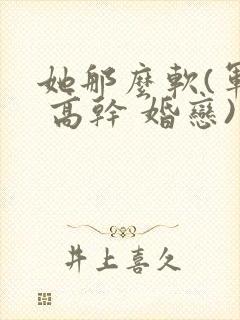 她那麼軟(軍
高幹 婚戀)
井上喜久